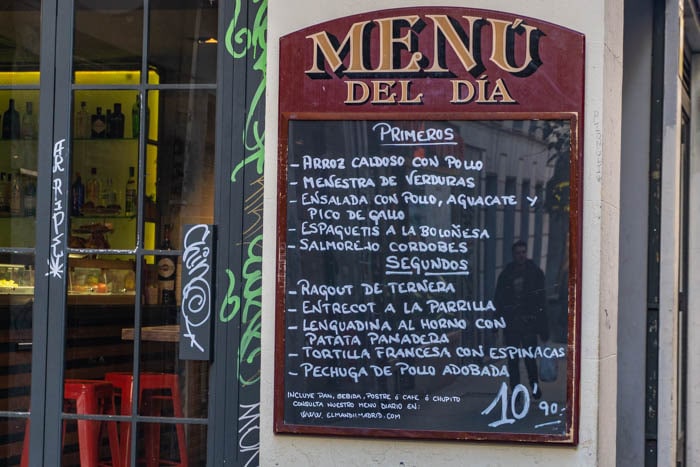 MENÚ
DEL DÍA
PRIMEROS
- ARROZ CALDOSO CON POLLO
- MENESTRA DE VERDURAS
- ENSALADA CON POLLO, AGUACATE Y
PICO DE GALLO
- ESPAGUETIS A LA BOLOÑESA
- SALMOREJO CORDOBES
SEGUNDOS
- RAGOUT DE TERNERA
- ENTRECOT A LA PARRILLA
- LENGUADINA AL HORNO CON
PATATA PANADERA
- TORTILLA FRANCESA CON ESPINACAS
- PECHUGA DE POLLO ADOBADA
INCLUYE PAN, BEBIDA, POSTRE Ó CAFE Ó CHUPITO
CONSULTA NUESTRO MENU DIARIO EN:
WWW. ELMANDIIMADRID.COM
10'90.-